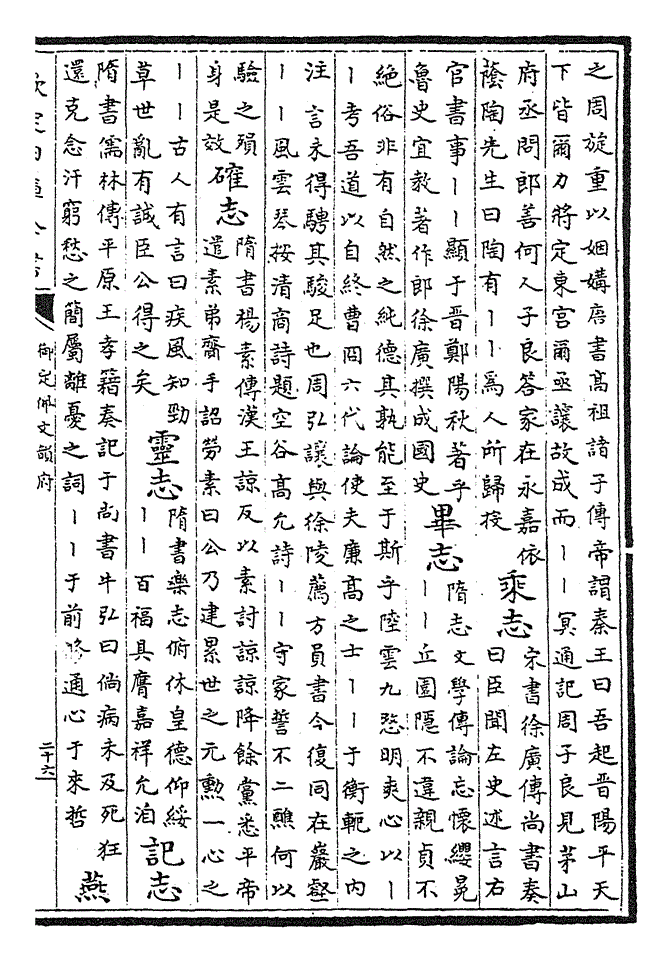 之周旋重以姻媾唐書高祖諸子傳帝謂秦王曰吾起晉陽平天
下皆爾力將定東宮爾亟讓故成而丨丨冥通記周子良見茅山
府丞問郎善何人子良答家在永嘉依
蔭陶先生曰陶有丨丨為人所歸投
乘志
宋書徐廣傳尚書奏
曰臣聞左史述言右
官書事丨丨顯于晉鄭陽秋著乎
魯史宜敕著作郎徐廣撰成國史
畢志
隋志文學傳論志懷纓冕
丨丨丘園隱不違親貞不
絕俗非有自然之純德其孰能至于斯乎陸雲九愍明爽心以丨
丨考吾道以自終曹冏六代論使夫廉高之士丨丨于衡軛之內
注言未得騁其駿足也周弘讓與徐陵薦方員書今復同在巖壑
丨丨風雲琴按清商詩題空谷高允詩丨丨守家誓不二醮何以
驗之殞
身是效
確志
隋書楊素傳漢王諒反以素討諒諒降餘黨悉平帝
遣素弟齋手詔勞素曰公乃建累世之元勲一心之
丨丨古人有言曰疾風知勁
草世亂有誠臣公得之矣
靈志
隋書樂志俯休皇德仰綏
丨丨百福具膺嘉祥允洎
記志
隋書儒林傳平原王孝籍奏記于尚書牛弘曰倘病未及死狂
還克念汗窮愁之簡屬離憂之詞丨丨于前脩通心于來哲
燕
欽定四庫全書
御定佩文韻府
二十六